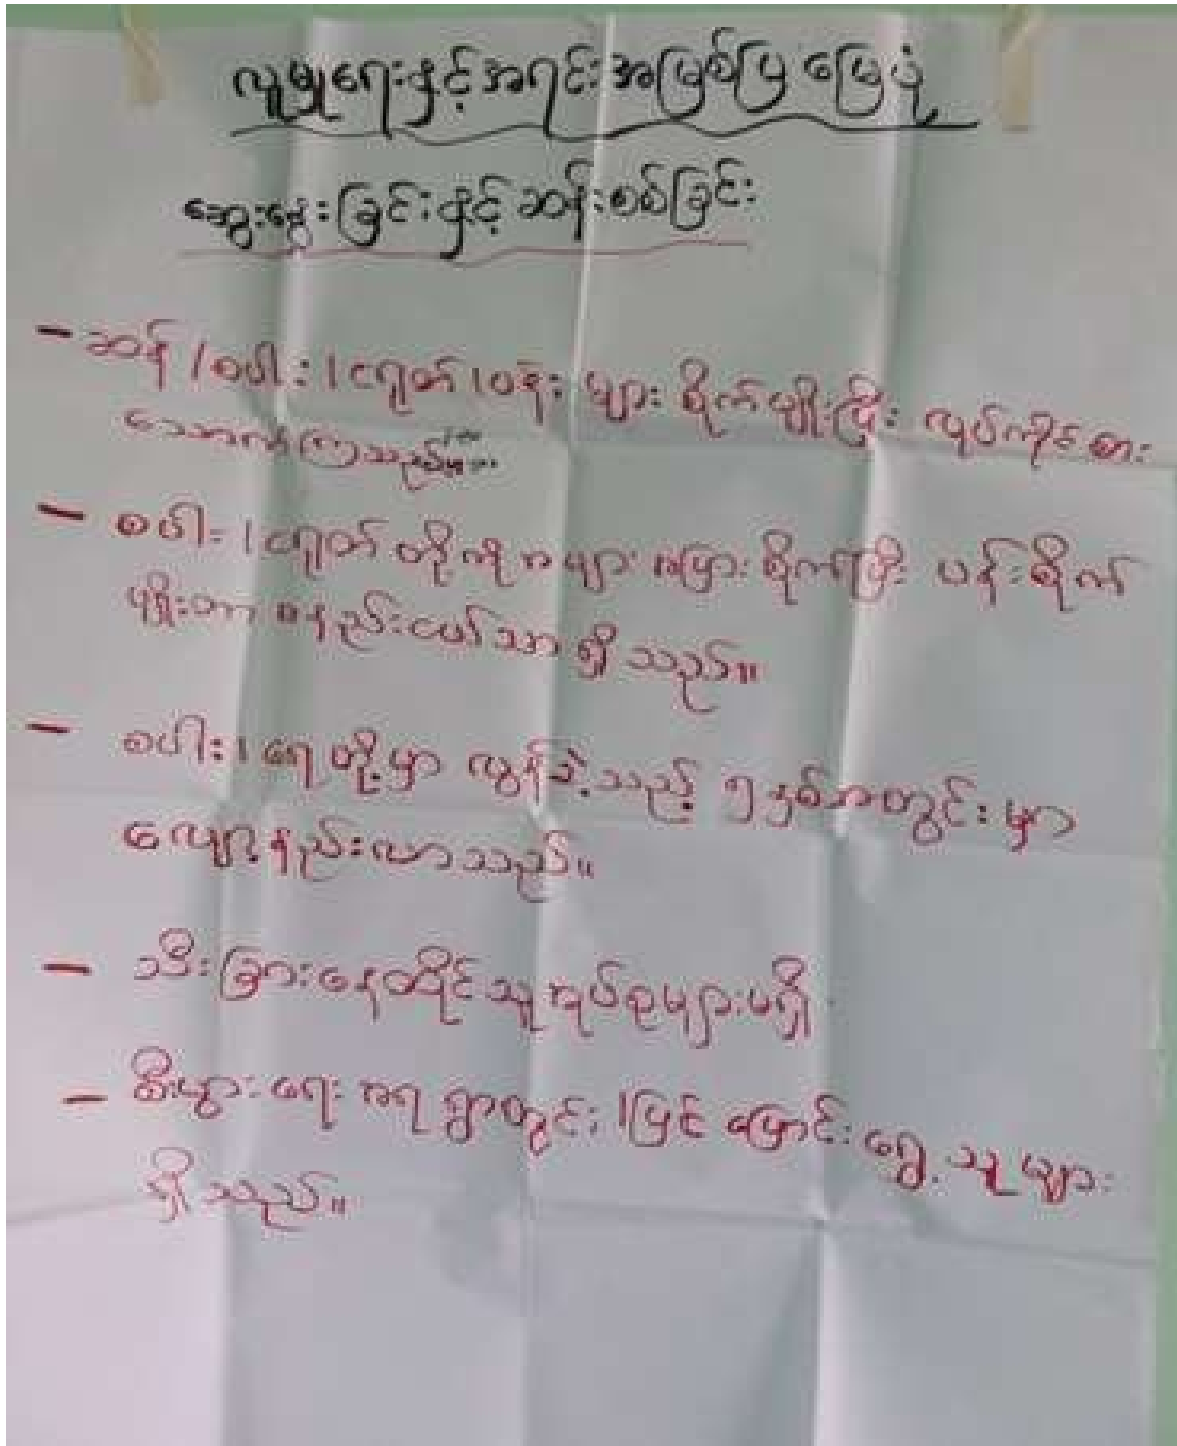 လူမှုရေးနှင့်အရင်းအမြစ်ပြ မြေပုံ
ဆွေးနွေးခြင်းနှင့် ဆန်းစစ်ခြင်း
- ဆန် / စပါး / ငရုတ် / ပန်း များ စိုက်ပျိုးပြီး လုပ်ကိုင်စား
သောက်ကြသည်
- စပါး / ငရုတ် တို့ကို အများအပြား စိုက်ပြီး ပန်းစိုက်
ပျိုးတာ အနည်းငယ်သာ ရှိသည်။
- စပါး / ရေ တို့မှာ လွန်ခဲ့သည့် ၅နှစ်အတွင်းမှာ
လျော့နည်းလာသည်။
- သီးခြားနေထိုင်သူအုပ်စုများမရှိ
- စီးပွားရေးအရ ရွာတွင်း / ပြင် ပြောင်းရွှေ့သူများ
ရှိသည်။